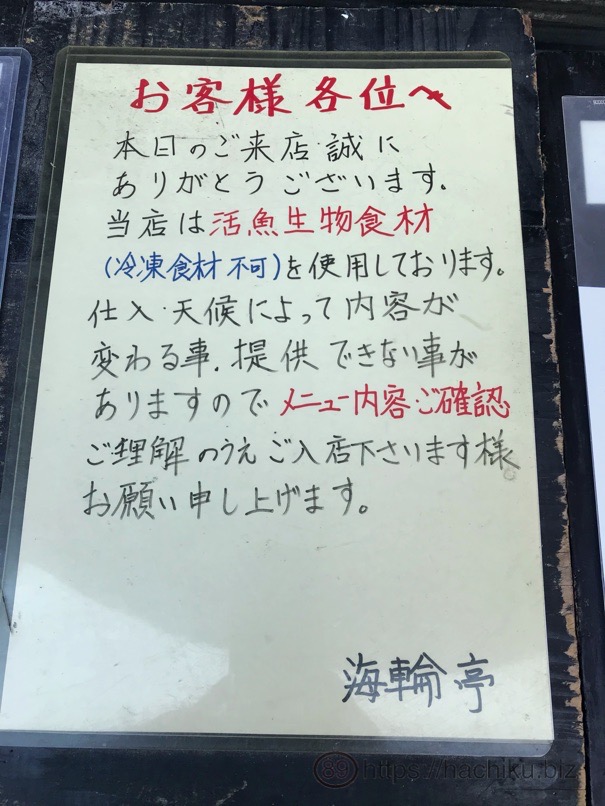 お客様各位へ
本日のご来店・誠に
ありがとうございます。
当店は活魚生物食材
(冷凍食材不可)を使用しております。
仕入・天候によって内容が
変わる事、提供できない事が
ありますのでメニュー内容・ご確認
ご理解のうえご入店下さります様
お願い申し上げます。
海輪亭
89 https://hachiku.biz